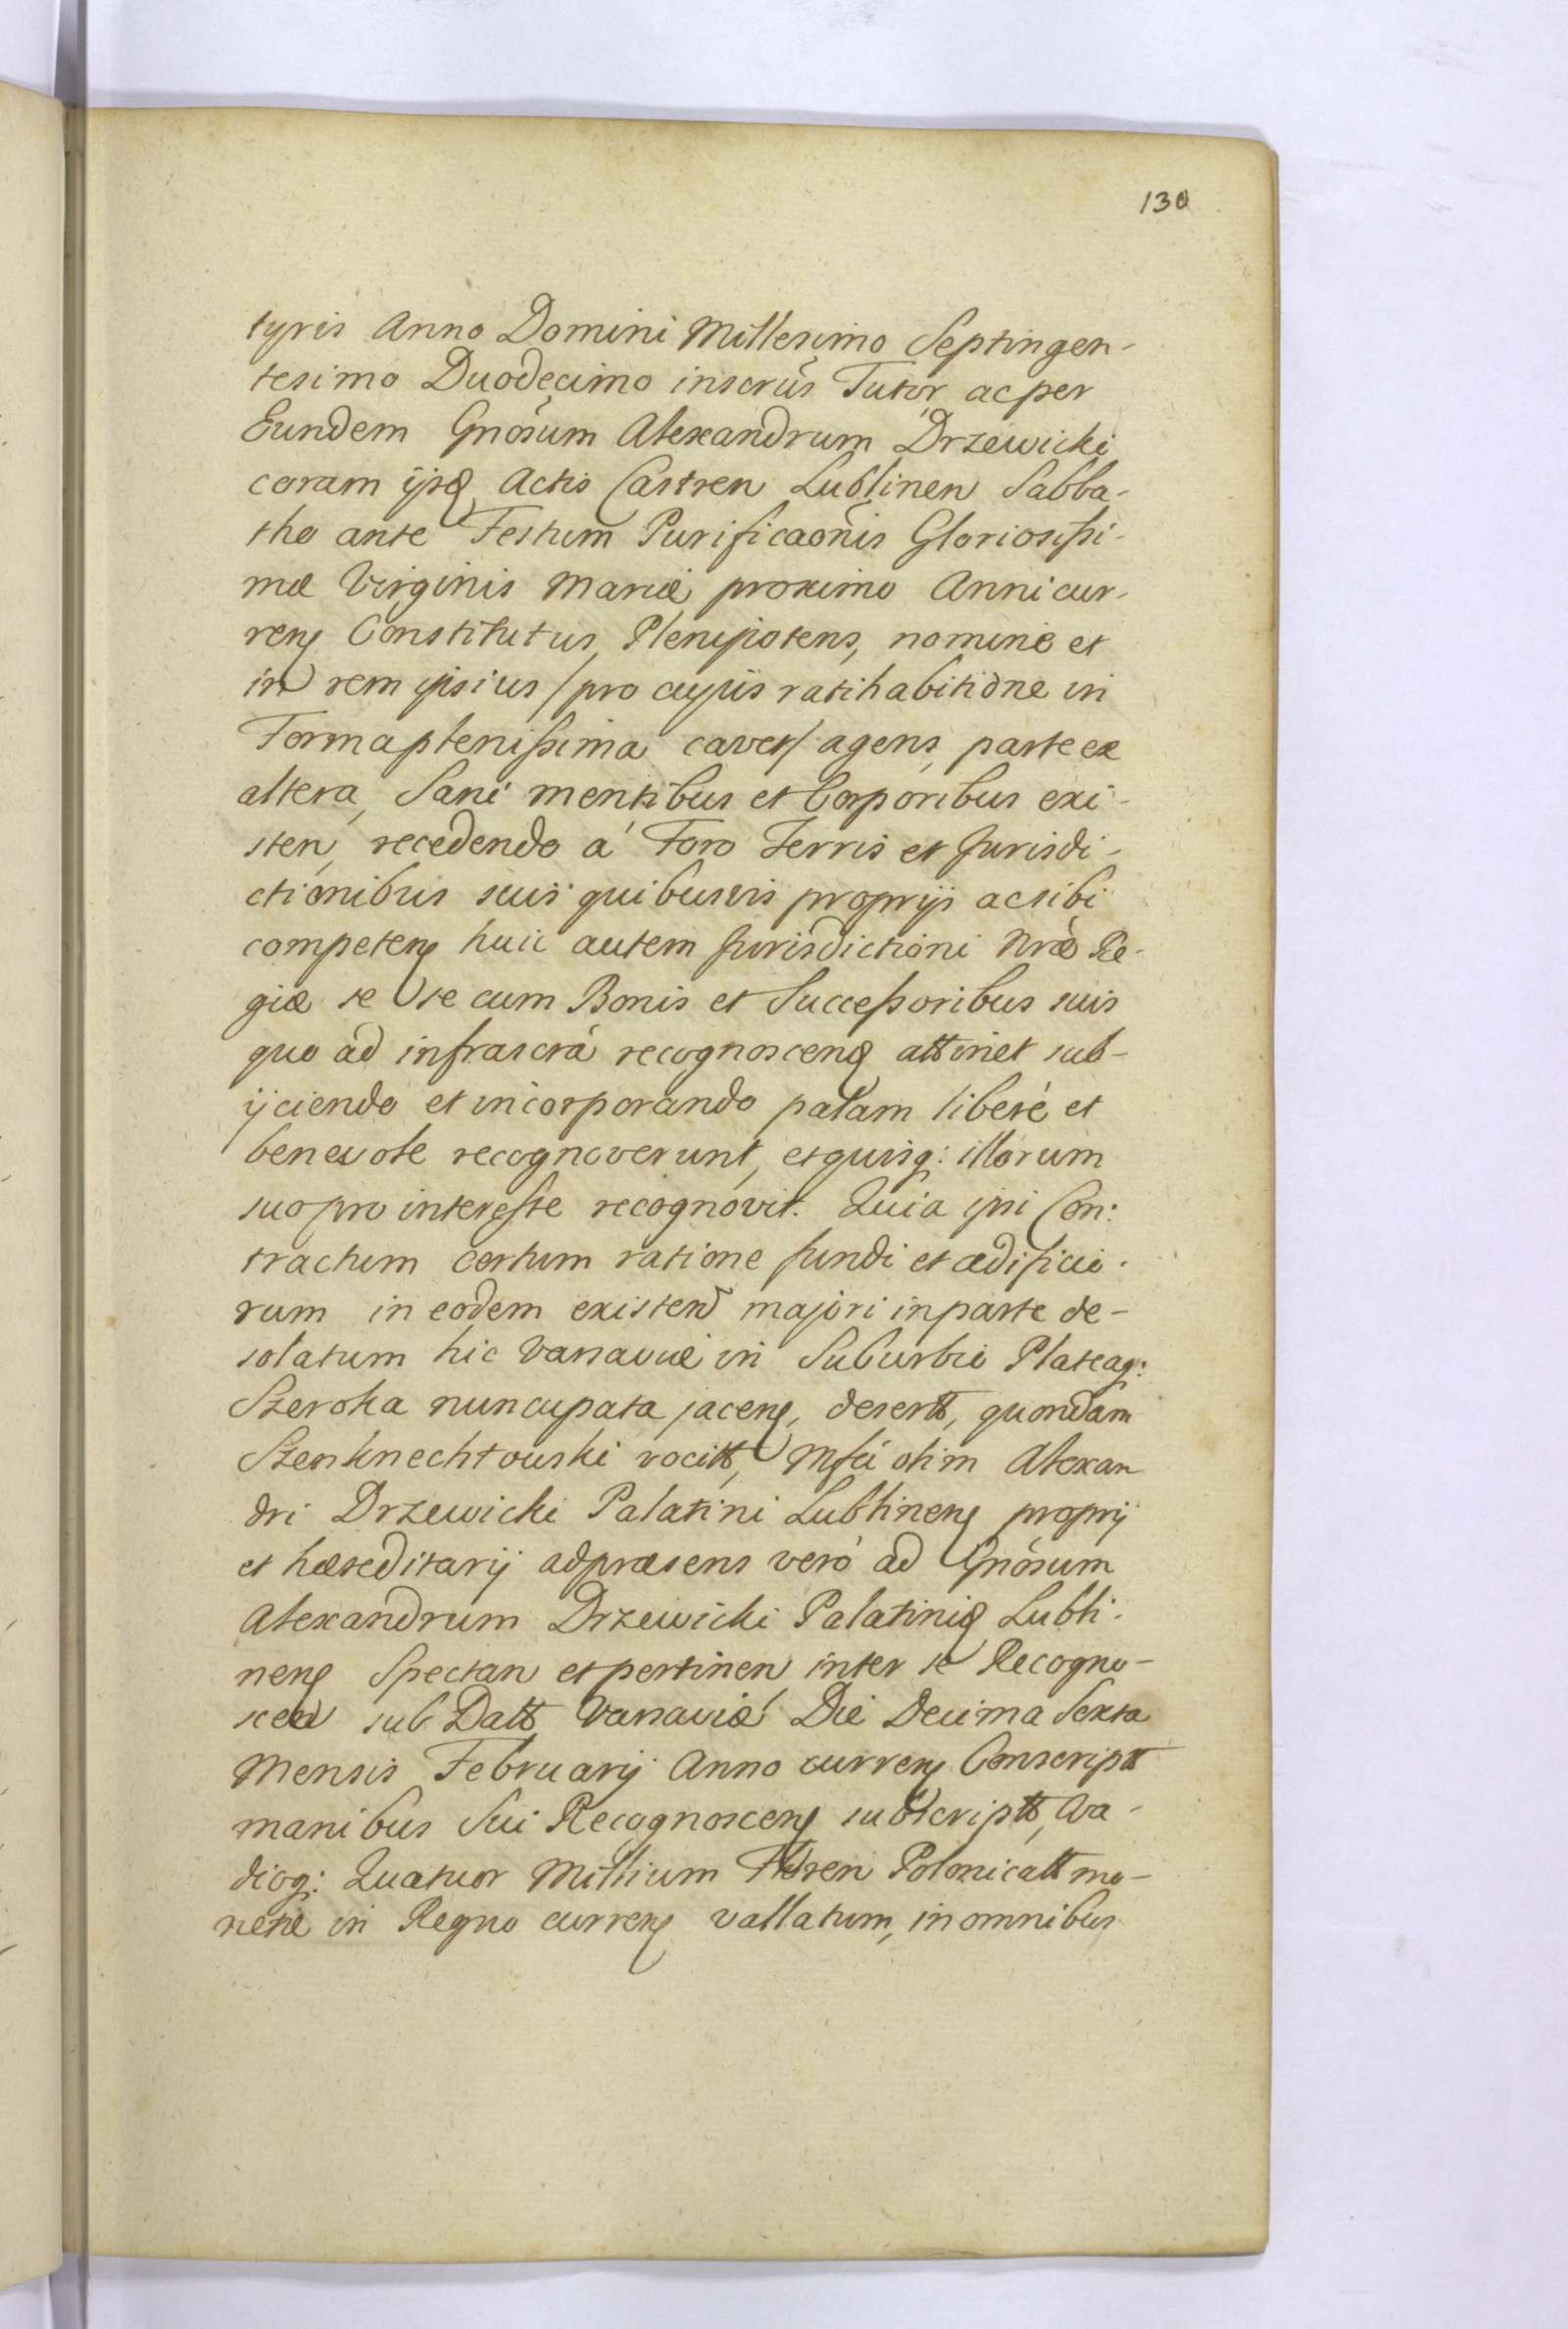 130
tyris Anno Domini Millesimo Septingen-
tesimo Duodecimo inscrűs Tutor ac per
Eundem Gnősum Alexandrum Drzewicki
coram ijsd Actis Castren Lublinen Sabba-
tho ante Festum Purificaőnis Gloriosissi-
mæ Virginis Mariæ proximo Anni cur-
ren Constitutus Plenipotens, nomine et
in rem ipsius /pro cujus ratihabitione in
Forma plenissima cavet/ agens, parte ex
altera, Sani mentibus et Corporibus exi-
sten, recedendo á Foro Terris et Jurisdi-
ctionibus suis quibusvis proprijs ac sibi
competen huic autem Jurisdictioni Nræ Re-
giæ se se cum Bonis et Successoribus suis
quo ad infrascrá recognoscend attinet sub-
ijciendo et incorporando palam liberé et
benevole recognoverunt, et quisq: illorum
suo pro interesse recognovit. Quia ipsi Con:
tractum certum ratione fundi et ædificio-
rum in eodem existen majori in parte de-
solatum hic Varsaviæ in Suburbio Plateaq:
Szeroka nuncupata jacen, desertt, quondam
Szenknechtowski vocitt, Mfci olim Alexan
dri Drzewicki Palatini Lublinen proprij
et hæreditarij ad præsens veró ad Gnősum
Alexandrum Drzewicki Palatinid Lubli-
nen Spectan et pertinen inter se Recogno-
scen sub Datt Varsaviæ Die Decima Sexta
Mensis Februarij Anno curren Conscriptt
manibus Sui Recognoscen subscriptt, Va-
dioq: Quatuor Millium Floren Polonicatt mo-
netæ in Regno curren vallatum, in omnibus